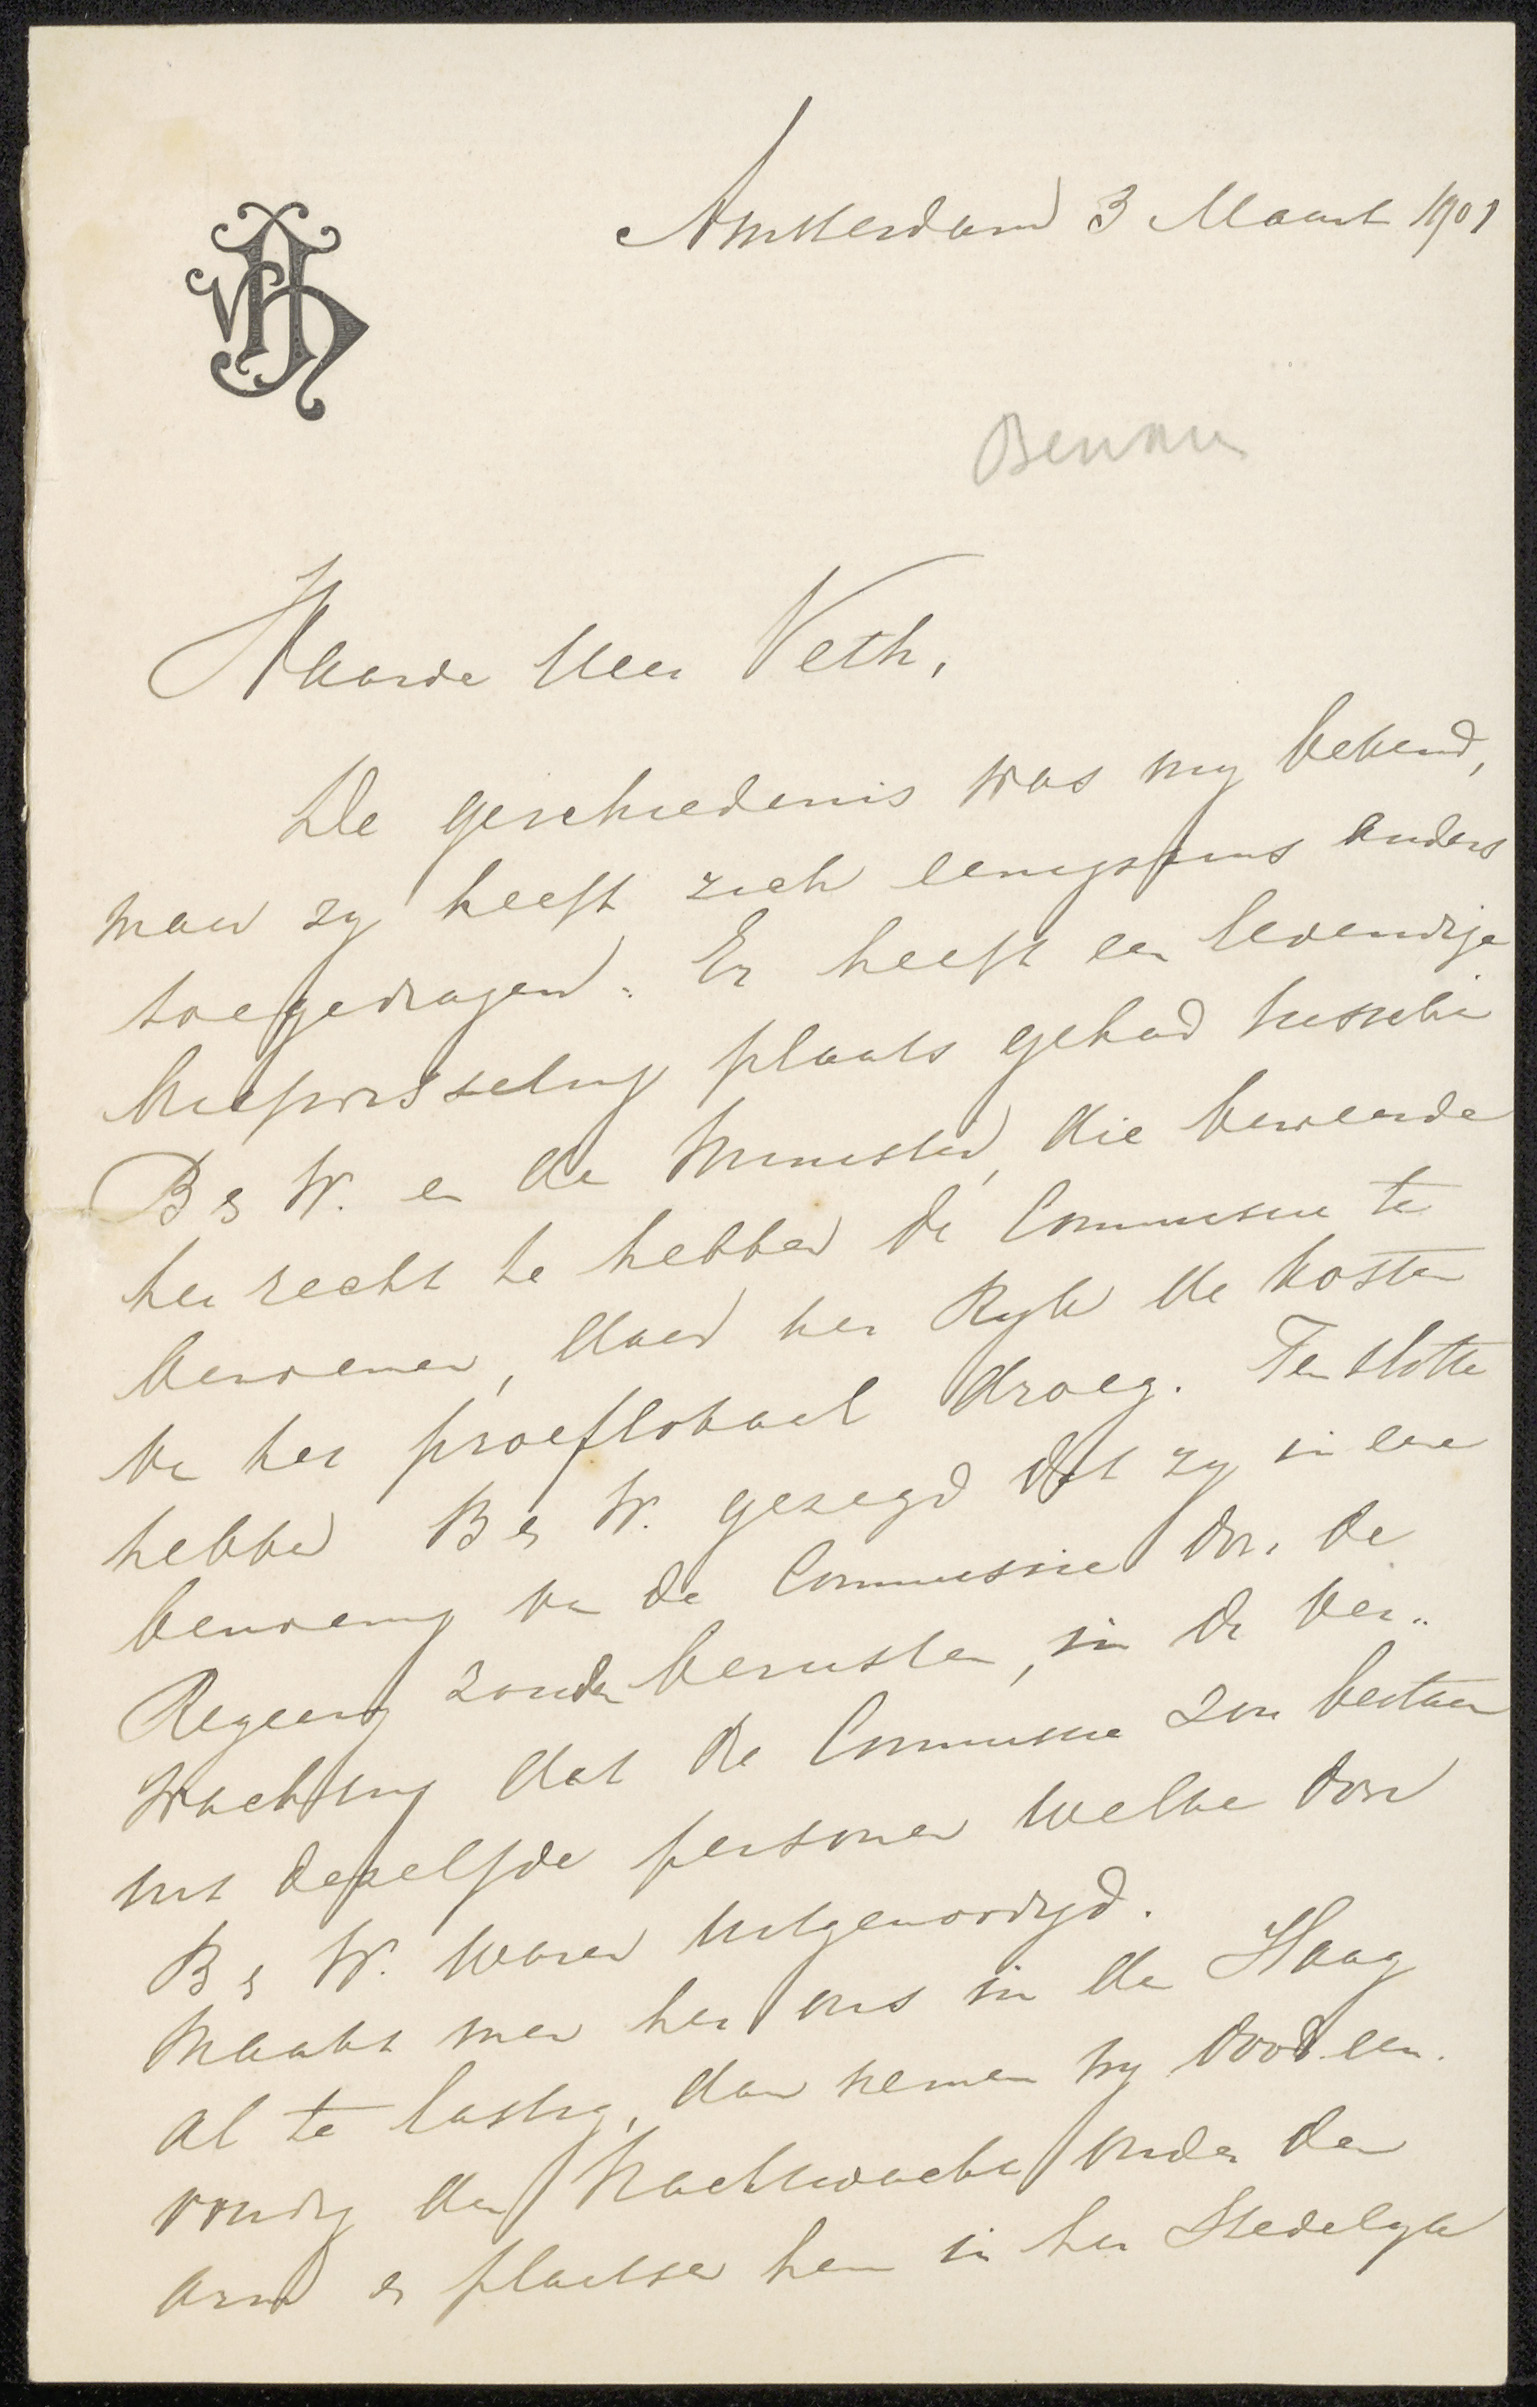 Amsterdam 3 Maart 1901
Waarde Heer Veth,
De geschiedenis was my bekend,
maar zy heeft zich eenigszins anders
toegedragen. Er heeft een levendige
briefwisseling plaats gehad tusschen
B & W. en de Minister, die beweerde
het recht te hebben de Commissie te
benoemen, daar het Ryk de kosten
van het proeflokaal droeg. Ten slotte
hebben B & W. gezegd dat zy in eene
benoeming van de Commissie door de
Regeering zouden berusten, in de ver..
wachting dat de Commissie zou bestaan
uit dezelfde personen welke door
B & W. waren uitgenoodigd.
Maakt men het ons in den Haag
al te lastig, dan nemen wy dood een.
voudig den Nachtwacht onder den
arm en plaatsen hem in het Stedelyk